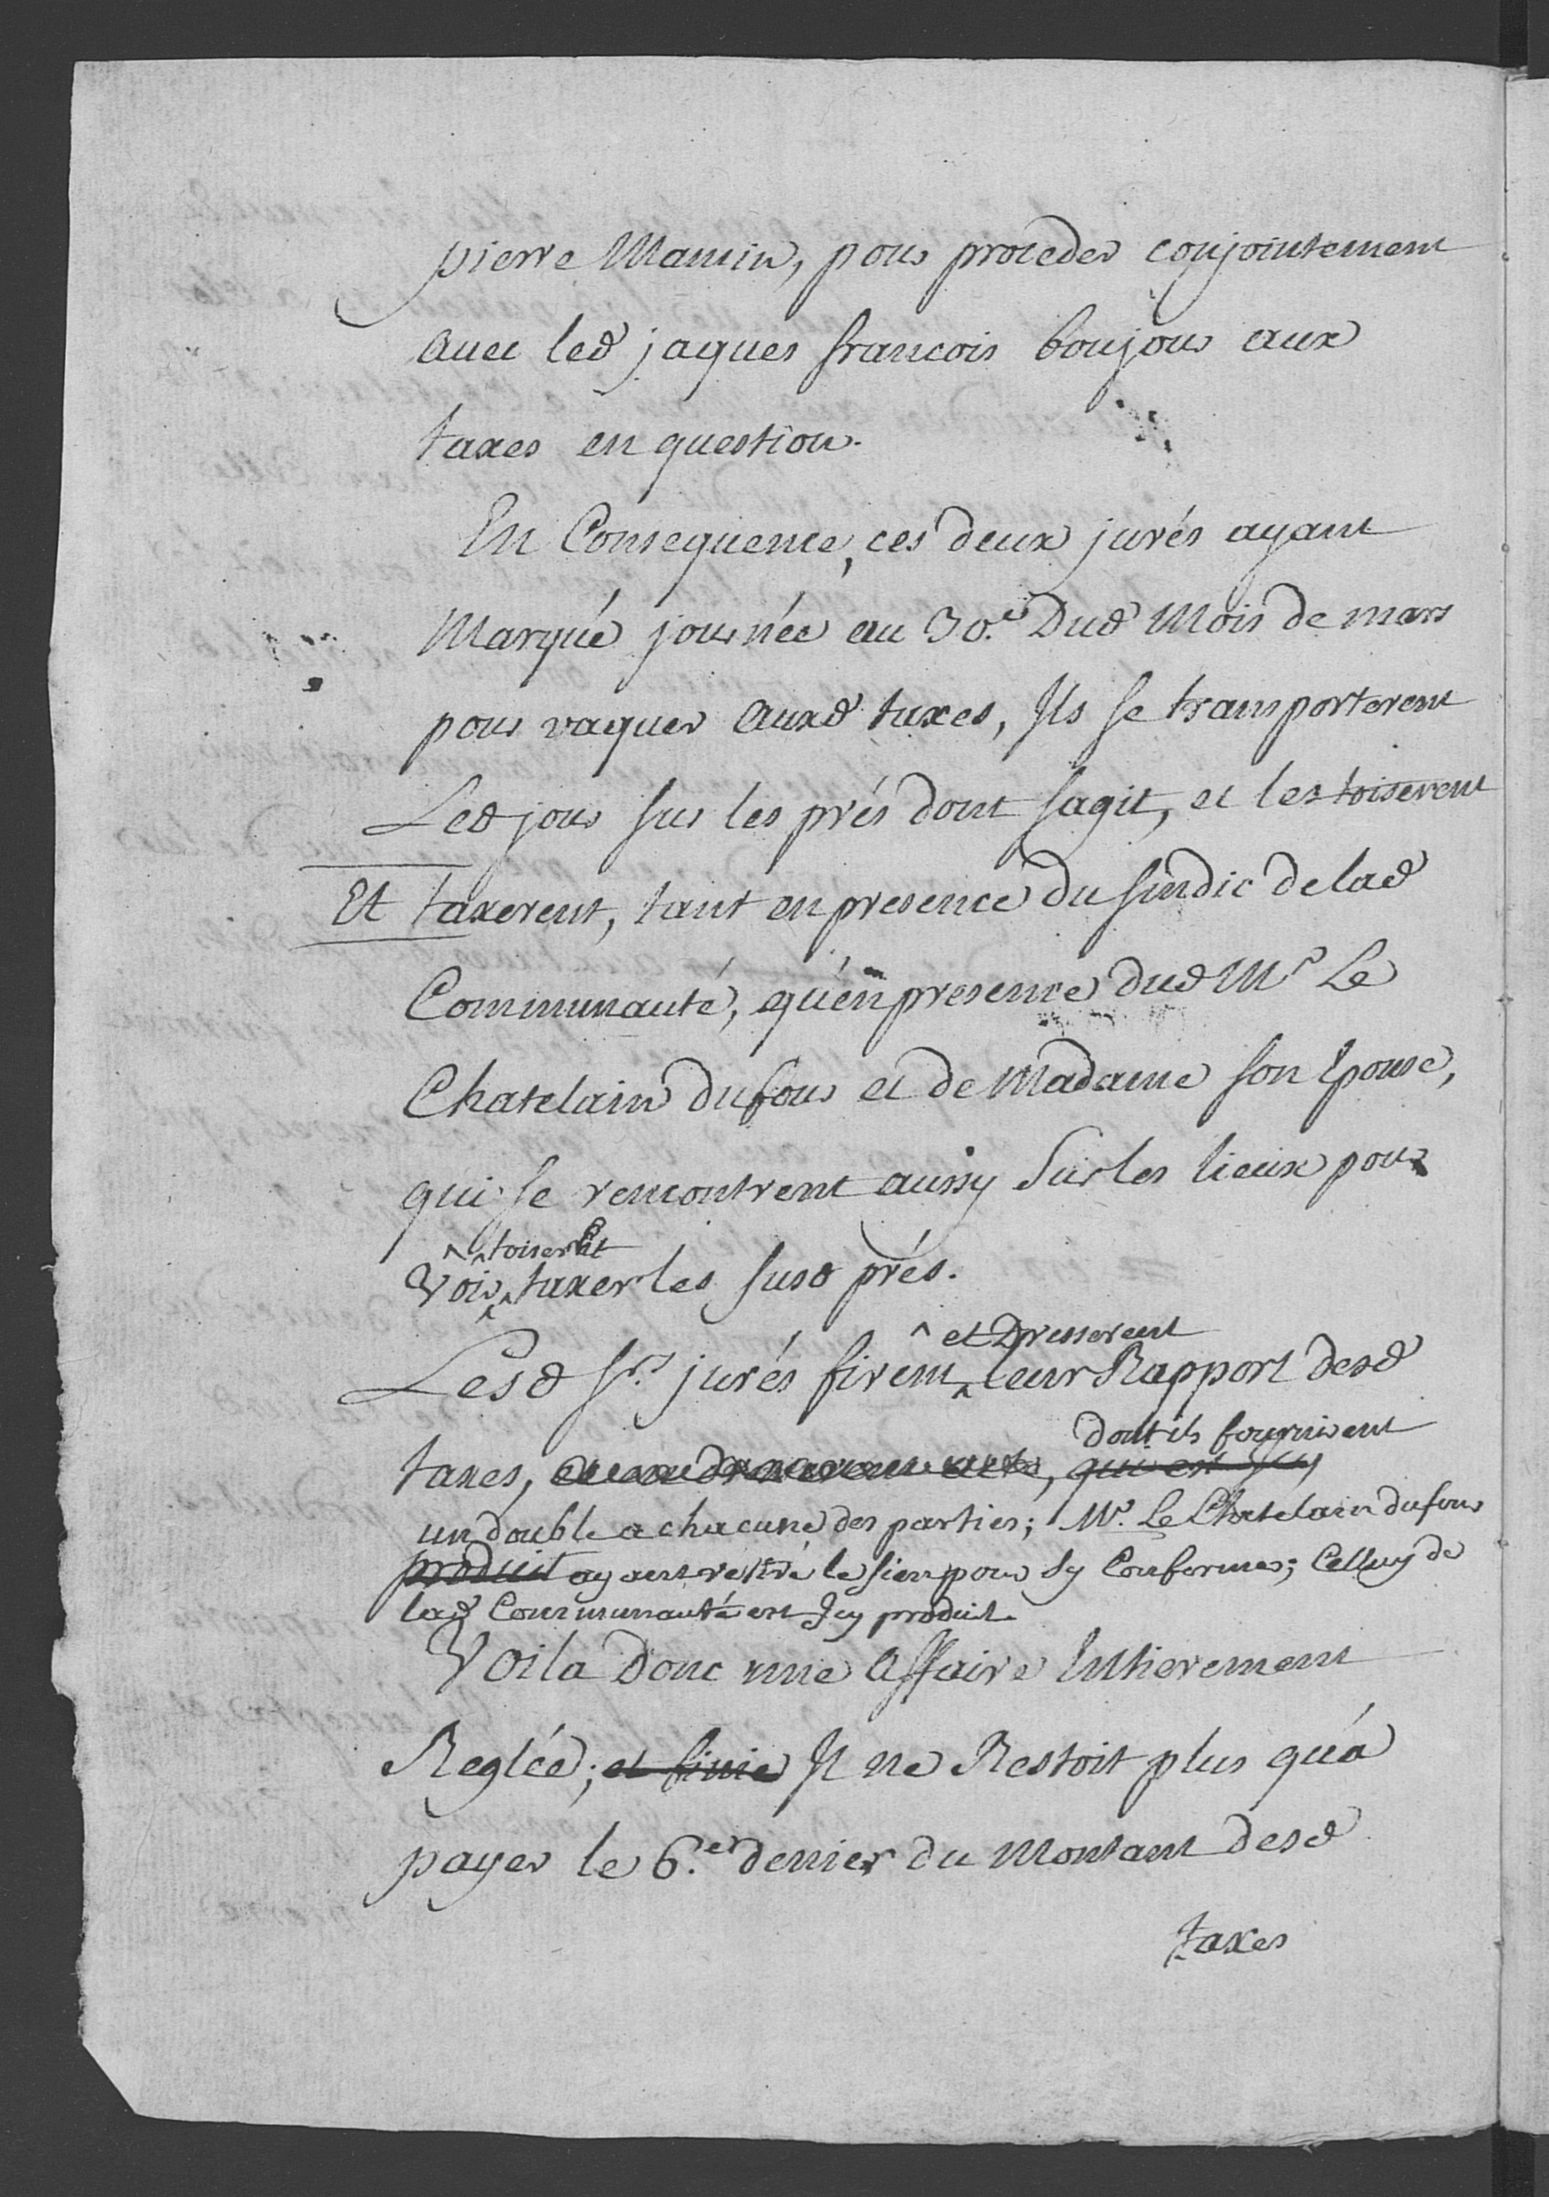 pierre Mamin, pour proceder conjointement
avec led jaques francois boujour aux
taxes en question.
En Consequence, ces deux jurés ayant
Marqué journée au 30.e Dud Mois de mars
pour vaquer auxd taxes, Ils se transporterent
Led jour sur les prés dont sagit, et les toiserent
Et taxerent, tant en presence du sindic de lad
Communauté, qu'en presence dud Mr Le
Chatelain dufour et de Madame son Epouse,
qui se rencontrent aussy sur les lieux pour
toiser et
Voir taxer les susd prés.
et Dresserent
Lesd Srs jurés firent leur Rapport desd
dont ils fournirent
taxes, acte, qui est Icy
un double a chacune des parties; Mr. Le Chatelain dufour
produit ayant retiré le sien pour sy Conformer; Celluy de
lad Communauté est Icy produit.
Voila donc une affaire Entierement
Reglée; et finie Il ne Restoit plus qu'á
payer le 6.er denier du Montant desd
taxes